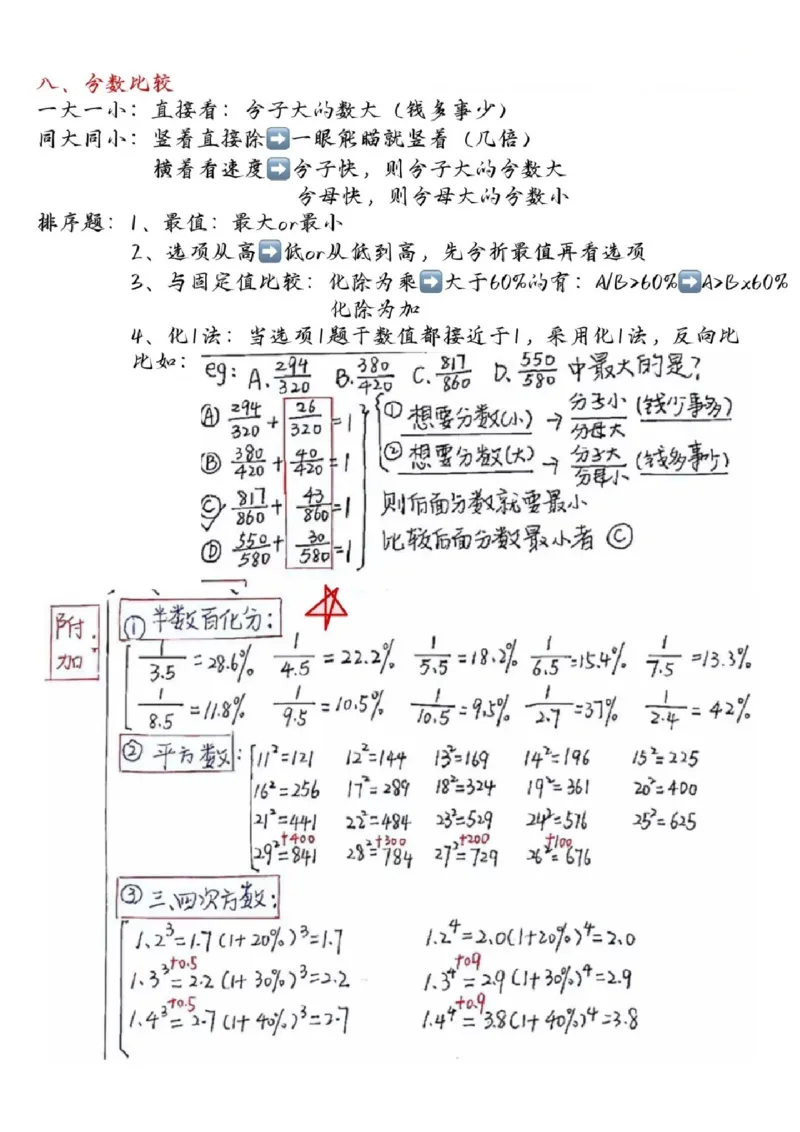 八、分数比较
一大一小：直接看：分子大的数大（钱多事少）
同大同小：竖着直接除➡️一眼能瞄就竖着（几倍）
横着看速度➡️分子快，则分子大的分数大
分母快，则分母大的分数小
排序题：1、最值：最大or最小
2、选项从高➡️低or从低到高，先分析最值再看选项
3、与固定值比较：化除为乘➡️大于60%的有：A/B>60%➡️A>Bx60%
化除为加
4、化1法：当选项1题干数值都接近于1，采用化1法，反向比
比如：
eg：A. 294/320 B. 380/420 C. 817/860 D. 550/580 中最大的是？
Ⓐ 294/320 + 26/320 = 1
Ⓑ 380/420 + 40/420 = 1
Ⓒ 817/860 + 43/860 = 1
Ⓓ 550/580 + 30/580 = 1
① 想要分数(小) → 分子小/分母大 (钱少事多)
② 想要分数(大) → 分子大/分母小 (钱多事少)
则后面分数就要最小
比较后面分数最小者 Ⓒ
附加
① 半数百化分：
1/3.5 = 28.6% 1/4.5 = 22.2% 1/5.5 = 18.2% 1/6.5 = 15.4% 1/7.5 = 13.3%
1/8.5 = 11.8% 1/9.5 = 10.5% 1/10.5 = 9.5% 1/2.7 = 37% 1/2.4 = 42%
② 平方数：
11²=121 12²=144 13²=169 14²=196 15²=225
16²=256 17²=289 18²=324 19²=361 20²=400
21²=441 22²=484 23²=529 24²=576 25²=625
+400 +300 +200 +100
29²=841 28²=784 27²=729 26²=676
③ 三、四次方数：
1.2³=1.7 (1+20%)³=1.7 1.2⁴=2.0 (1+20%)⁴=2.0
+0.5 +0.9
1.3³=2.2 (1+30%)³=2.2 1.3⁴=2.9 (1+30%)⁴=2.9
+0.5 +0.9
1.4³=2.7 (1+40%)³=2.7 1.4⁴=3.8 (1+40%)⁴=3.8